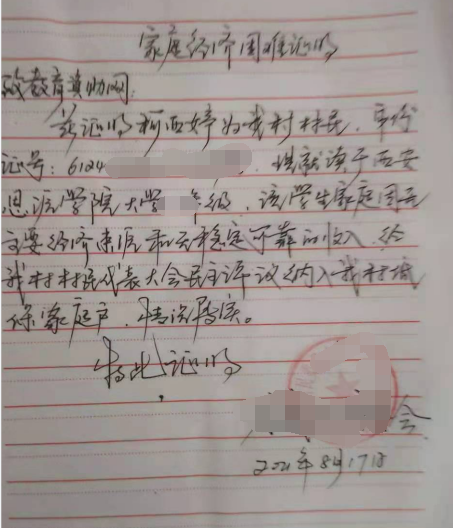 家庭经济困难证明
致教育资助网:
兹证明柯西婷为我村村民,身份
证号:6124 ,现就读于西安
思源学院大学 年级,该学生家庭因无
主要经济来源和无稳定可靠的收入,经
我村村民代表大会民主评议纳入我村低
保家庭户,情况属实。
特此证明
会
2021年8月17日